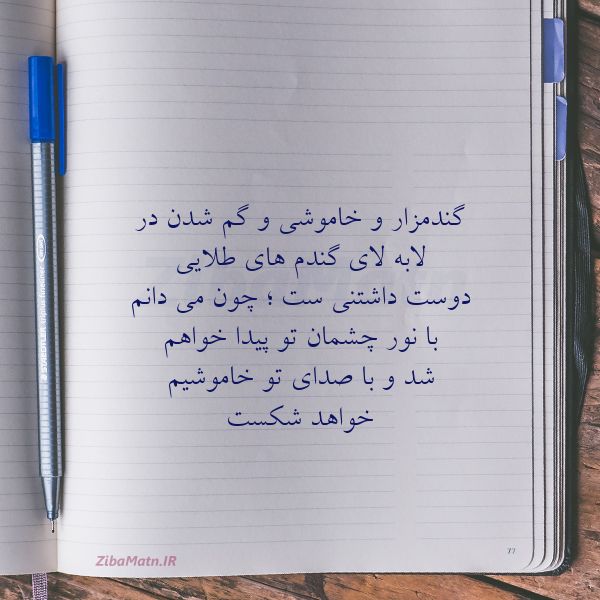 گندمزار و خاموشی و گم شدن در
لابه لای گندم های طلایی
دوست داشتنی ست ؛ چون می دانم
با نور چشمان تو پیدا خواهم
شد و با صدای تو خاموشیم
خواهد شکست
77
ZibaMatn.IR